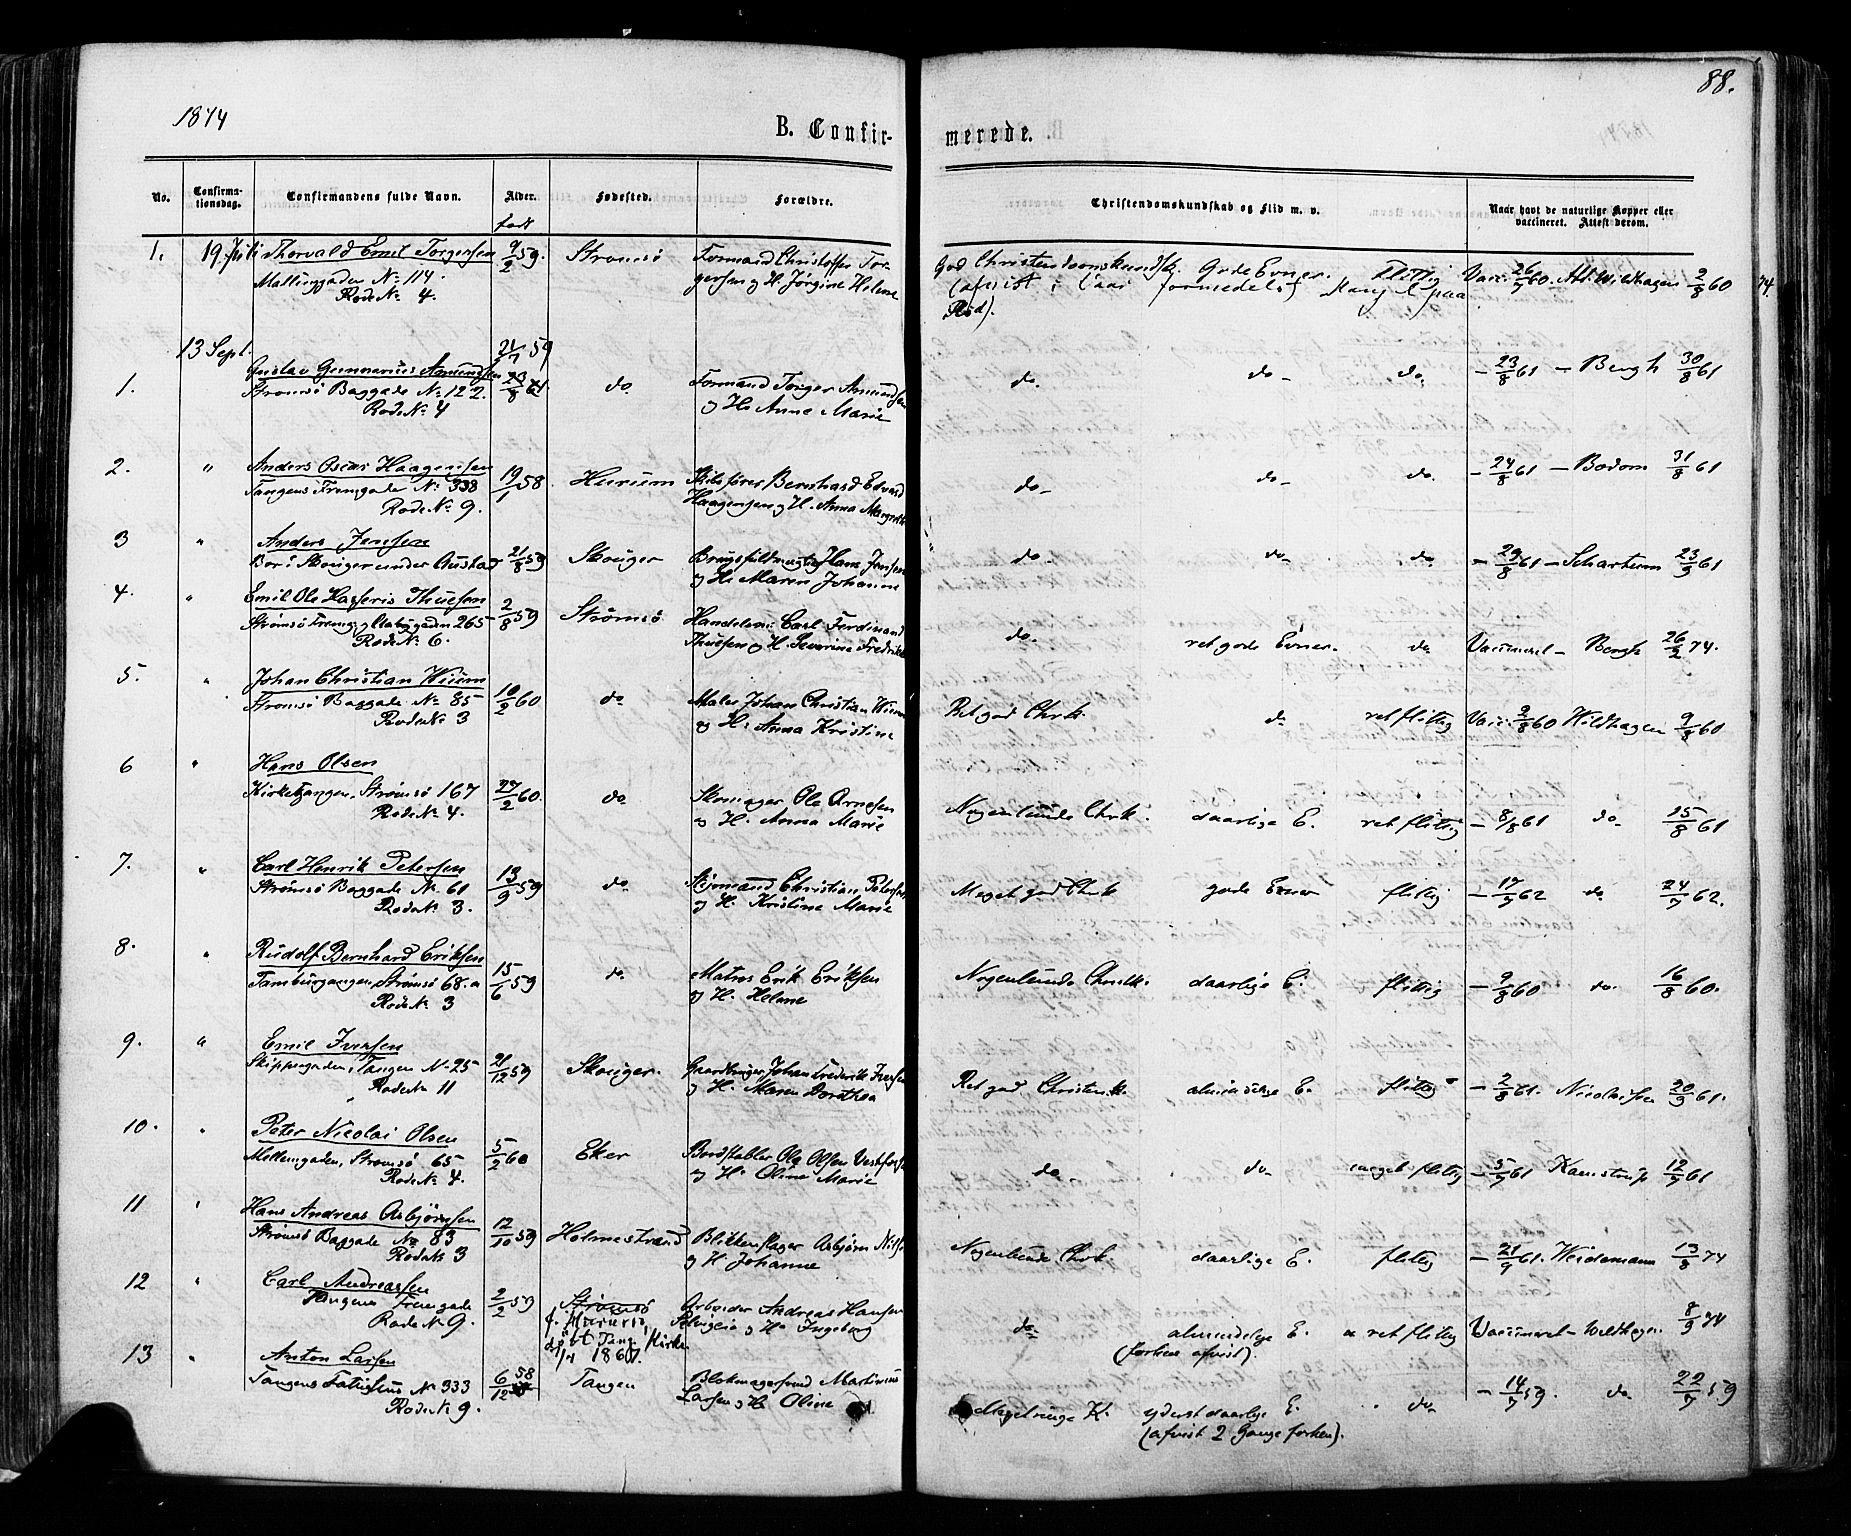 1874
88.
B. Confir-
merede.
No.
Confirma-
tionsdag.
Confirmandens fulde Navn.
Alder.
født
Fødested.
Forældre.
Christendomskundskab og Flid m. v.
Naar havt de naturlige Kopper eller
vaccineret. Attest derom.
1. 19 Juli Thorvald Emil Torgersen 9/2 59. Strømsø Formand Christoffer Tor-
Mallinggaden No 114. gersen og H. Jørgine Helene
Rode No 4.
God Christendomskundsk. Gode Evner. Flittig Vacc. 26/7 60. Att. Wildhagen 2/8 60 74.
(afvist i Caar formedelst Mang. paa
Rød).
13 Sept. 21/7 59
1. Gustav Gunnarius Amundsen 23/8 61 do Formand Torger Amundsen
Strømsø Baggade No 122. og H. Anne Marie
Rode No 4
do. do - do. - 23/8 61 - Bergh 30/8 61
2. " Anders Oscar Haagensen 19/1 58. Hurum Skibsfører Bernhard Edvard
Tangens Fremgade No 338 Haagensen og H. Anna Margrethe
Rode No 9.
do - do - do. - 24/8 61 - Bodom 31/8 61
3 " Anders Jensen 21/8 59 Skouger Brugsfuldmægtig Hans Jensen
Bor i Skouger under Gustad og H. Maren Johanne
do. do. do. - 29/8 61 - Schartum 23/9 61
4. " Emil Ole Kasseris Thuesen 2/8 59 Strømsø Handelsm. Carl Ferdinand
Strømsø Fremg. 265 Thuesen og H. Severine Fredrikke
Rode No 6.
do. ret gode Evner. do. Vaccineret - Bergh 26/2 74.
5. " Johan Christian Wium 10/2 60 do. Maler Johan Christian Wium
Strømsø Baggade No 85 og H. Anna Kristine
Rode No 3
Ret god Chrk. do. ret flittig Vacc. 2/8 60 Wildhagen 9/8 60
6 " Hans Olsen 27/2 60. do. Skomager Ole Arnesen
Kirketangen, Strømsø 167 og H. Anna Marie
Rode No 4.
Nogenlunde Chrk. daarlige E. ret flittig - 8/8 61 do - 15/8 61
7. " Carl Henrik Petersen 13/9 59 do. Styrmand Christian Petersen
Strømsø Baggade No 61 og H. Kristine Marie
Rode No 3.
Meget god Chrk gode Evner flittig - 17/7 62 do 24/7 62.
8. " Rudolf Bernhard Eriksen 15/6 59 do. Matros Erik Eriksen
Tamburgangen, Strømsø 68.a og H. Helene
Rode No 3
Nogenlunde Chrstk. daarlige E. flittig - 9/8 60 do. 16/8 60.
9. " Emil Iversen 21/12 59 Skouger. Gaardbruger Johan Frederik Iversen
Skippergaden, Tangen No 25 og H. Maren Dorothea
Rode No 11
Ret god Christensk. almindelige E. flittig - 2/8 61. Nicolaisen 20/9 61.
10. " Peter Nicolai Olsen 5/2 60 Eker Bordstabler Ole Olsen Vestfossen
Mellemgaden, Strømsø 65 og H. Oline Marie
Rode No 4.
do do. meget flittig - 5/7 61 Kamstrup 12/7 61
11 " Hans Andreas Asbjørnsen 12/10 59 Holmestrand Blikkenslager Asbjørn Nils.
Strømsø Baggade No 83 og H. Johanne
Rode No 3
Nogenlunde Chrk. daarlige E. flittig - 21/9 61. Weidemann 13/8 74
12 " Carl Andreassen 2/2 59 Strømsø Arbeider Andreas Hansen
Tangens Fremgade og H. Ingeborg
Rode No 9. døbt Tang. Kirke
1860.
do - almindelige E. ret flittig Vaccineret - Wildhagen 8/9 74
(forhen afvist).
13 " Anton Larsen 6/12 58 Tangen Blokmagersvend Martinius
Tangens Fattighus No 333 Larsen og H. Oline
Rode No 9.
Meget ringe K. yderst daarlige E. do - - 14/7 59. do. 22/7 59
(afvist 2 Gange forhen).